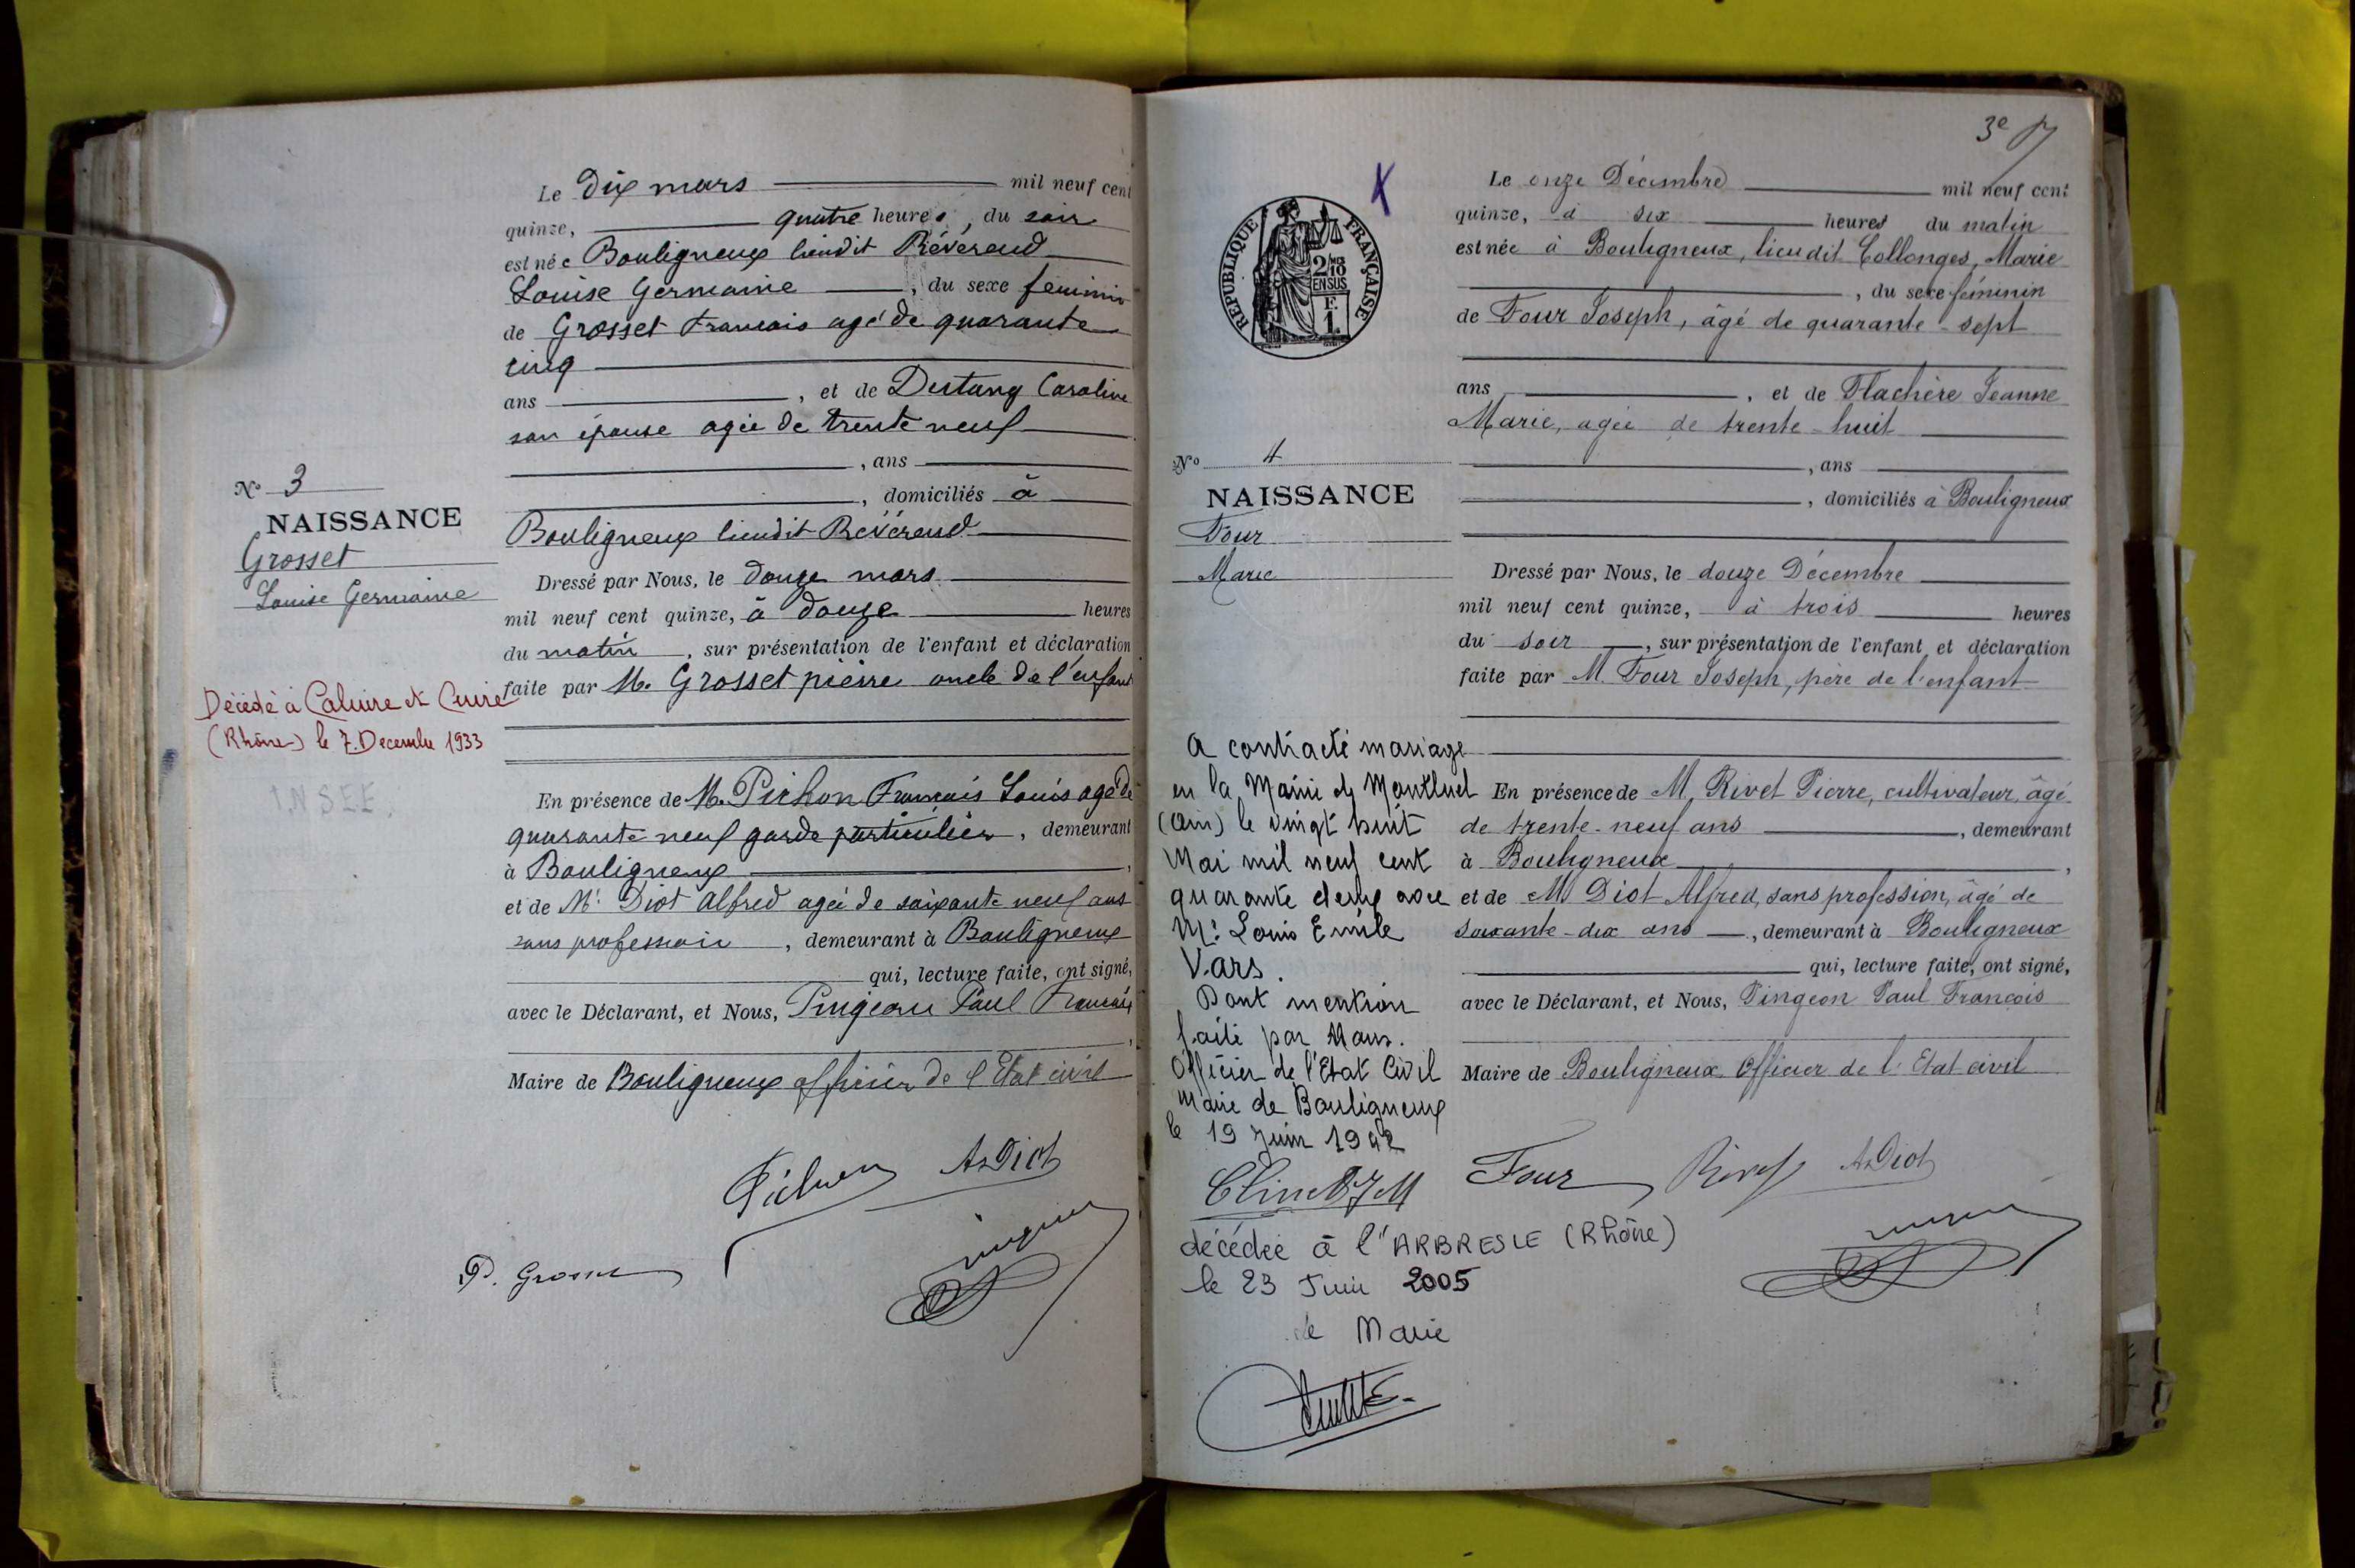 Le Dix mars mil neuf cent
quinze, quatre heures, du soir
est née Bouligneux lieudit Révérend
Louise Germaine, du sexe féminin
de Grosset Francois agé de quarante
cinq
ans, et de Destang Caroline
son épouse agée de trente neuf
, ans
, domiciliés à
Bouligneux lieudit Révérend
Dressé par Nous, le douze mars
mil neuf cent quinze, à douze heures
du matin, sur présentation de l'enfant et déclaration
faite par M. Grosset pierre oncle de l'enfant
En présence de M. Pichon François Louis agé de
quarante neuf garde particulier, demeurant
à Bouligneux,
et de Mr Diot Alfred agé de soixante neuf ans
sans profession, demeurant à Bouligneux
qui, lecture faite, ont signé,
avec le Déclarant, et Nous, Pingeon Paul Francois,
Maire de Bouligneux officier de l'Etat civil
Pichon A. Diot
P. Grosset
No 3
NAISSANCE
Grosset
Louise Germaine
Décédé à Caluire et Cuire
(Rhône) le 7. Decembre 1933
INSEE.
3e
RÉPUBLIQUE FRANÇAISE
2/10
EN SUS
F.
1.
Le onze Décembre mil neuf cent
quinze, à six heures du matin
est née à Bouligneux, lieu dit Collonges, Marie
, du sexe féminin
de Four Joseph, âgé de quarante-sept
ans, et de Flachère Jeanne
Marie, agée de trente-huit
, ans
, domiciliés à Bouligneux
Dressé par Nous, le douze Décembre
mil neuf cent quinze, à trois heures
du soir, sur présentation de l'enfant et déclaration
faite par M. Four Joseph, père de l'enfant
En présence de M. Rivet Pierre, cultivateur, âgé
de trente-neuf ans, demeurant
à Bouligneux,
et de M. Diot Alfred, sans profession, âgé de
soixante-dix ans, demeurant à Bouligneux
qui, lecture faite, ont signé,
avec le Déclarant, et Nous, Pingeon Paul François
Maire de Bouligneux Officier de l'Etat civil
Four Rivet A. Diot
No 4
NAISSANCE
Four
Marie
A contracté mariage
en la Mairie de Montluel
(Ain) le vingt huit
Mai mil neuf cent
quarante deux avec
Mr. Louis Emile
Vars.
Dont mention
faite par Nous.
Officier de l'Etat Civil
Maire de Bouligneux
le 19 Juin 1942
décédée à l'ARBRESLE (Rhône)
le 23 Juin 2005
le Maire